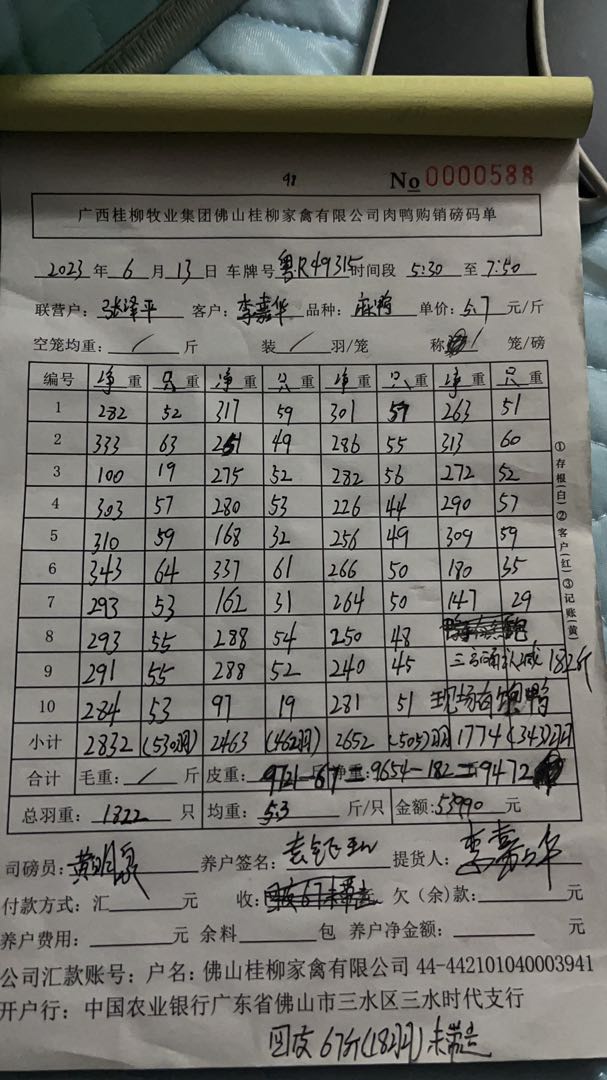 98
No 0000588
广西桂柳牧业集团佛山桂柳家禽有限公司肉鸭购销磅码单
2023 年 6 月 13 日 车牌号 粤R49315 时间段 5:30 至 7:50
联营户: 张泽平 客户: 李嘉华 品种: 麻鸭 单价: 5.7 元/斤
空笼均重: / 斤 装 / 羽/笼 称 / 笼/磅
编号 净重 只重 净重 只重 净重 只重 净重 只重
1 282 52 317 59 301 57 263 51
2 333 63 251 49 286 55 313 60
3 100 19 275 52 282 56 272 52
4 303 57 280 53 226 44 290 57
5 310 59 168 32 256 49 309 59
6 343 64 337 61 266 50 180 35
7 293 53 162 31 264 50 147 29
8 293 55 288 54 250 48
9 291 55 288 52 240 45 三方确认减182斤
10 284 53 97 19 281 51 现场有饱鸭
小计 2832 (530羽) 2463 (462羽) 2652 (505)羽 1774 (343)羽
合计 毛重: / 斤 皮重: 9721-67= 斤 净重: 9654-182=9472
总羽重: 1822 只 均重: 5.3 斤/只 金额: 53990 元
司磅员: 养户签名: 提货人: 李嘉华
付款方式: 汇 元 收: 欠(余)款: 元
养户费用: 元 余料 包 养户净金额: 元
公司汇款账号: 户名: 佛山桂柳家禽有限公司 44-442101040003941
开户行: 中国农业银行广东省佛山市三水区三水时代支行
回皮 67斤(18羽) 未带走
①存根(白)②客户(红)③记账(黄)